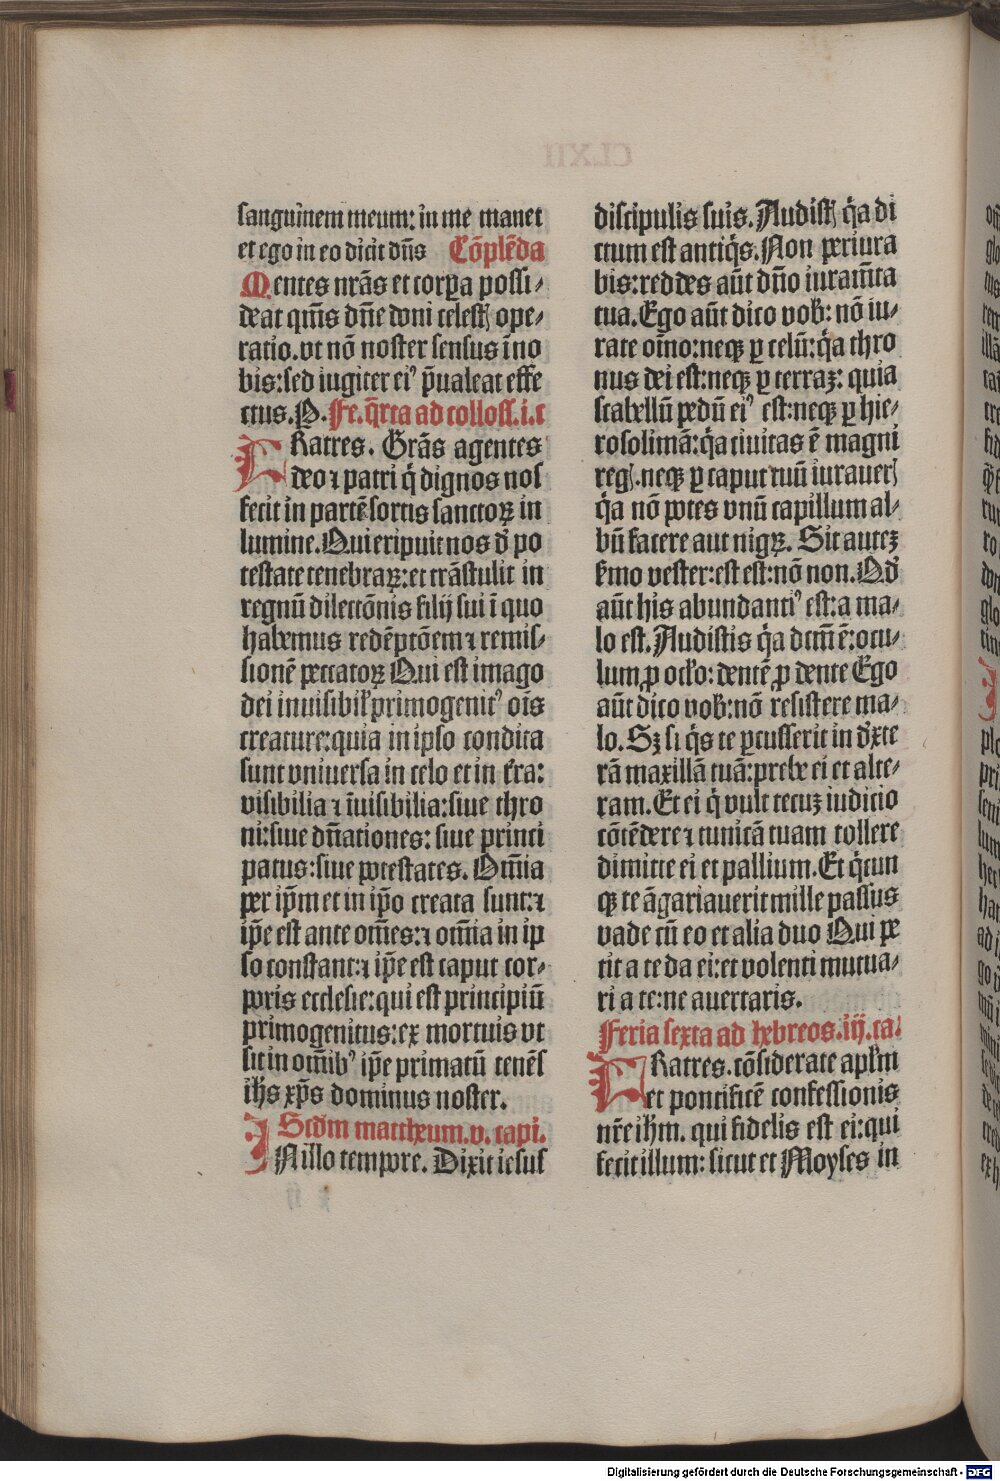 sanguinem meum: in me manet
et ego in eo dicit dñs Cõplẽda
Mentes nrãs et corpa possi-
deat qm̃s dñe doni celestꝭ ope-
ratio. vt nõ noster sensus ĩ no
bis: sed iugiter eiꝰ p̃ualeat effe
ctus. P. Fe. q̃rta ad colloss. i. c
FRatres. Grãs agentes
deo ⁊ patri q̇ dignos nos
fecit in partẽ sortis sanctoꝝ in
lumine. Qui eripuit nos d̾ po
testate tenebraꝝ: et trãstulit in
regnũ dilectõnis filij sui ĩ quo
habemus redẽptõem ⁊ remis-
sionẽ peccatoꝝ Qui est imago
dei inuisibil̕ primogenitꝰ oĩs
creature: quia in ipso condita
sunt vniuersa in celo et in t̃ra:
visibilia ⁊ ĩuisibilia: siue thro
ni: siue dñationes: siue princi
patus: siue potestates. Om̃ia
per ip̃m et in ip̃o creata sunt: ⁊
ip̃e est ante om̃es: ⁊ om̃ia in ip
so constant: ⁊ ip̃e est caput cor-
poris ecclesie: qui est principiũ
primogenitus: ex mortuis vt
sit in om̃ibꝰ ip̃e primatũ tenẽs
ih̃s xp̃s dominus noster.
Scd̾m mattheum. v. capi.
IN illo tempore. Dixit iesus
discipulis suis. Audistꝭ q̇a di
ctum est antiq̇s. Non periura
bis: reddes aũt dño iuram̃ta
tua. Ego aũt dico vob̕: nõ iu-
rare oĩno: neqꝫ ꝑ celũ: q̇a thro
nus dei est: neqꝫ ꝑ terraꝫ: quia
scabellũ pedũ eiꝰ est: neqꝫ ꝑ hie-
rosolimã: q̇a ciuitas ẽ magni
regꝭ. neqꝫ ꝑ caput tuũ iuraueꝭ
q̇a nõ potes vnũ capillum al-
bũ facere aut nigꝝ. Sit auteꝫ
s̃mo vester: est est: nõ non. Qd̾
aũt his abundantiꝰ est: a ma-
lo est. Audistis q̇a dcm̃ ẽ: ocu-
lum ꝓ oc̕lo: dentẽ ꝓ dente Ego
aũt dico vob̕: nõ resistere ma-
lo. Sꝫ si q̇s te ꝑcusserit in d̾xte
rã maxillã tuã: prebe ei et alte-
ram. Et ei q̇ vult tecuꝫ iudicio
cõtẽdere ⁊ tunicã tuam tollere
dimitte ei et pallium. Et q̇cun
qꝫ te ãgariauerit mille passus
vade cũ eo et alia duo Qui pe
tit a te da ei: et volenti mutua-
ri a te: ne auertaris.
Feria sexta ad hebreos. iij. ca.
FRatres. cõsiderate apl̕m
et pontificẽ confessionis
nr̃e ih̃m. qui fidelis est ei: qui
fecit illum: sicut et Moyses in
Digitalisierung gefördert durch die Deutsche Forschungsgemeinschaft - DFG